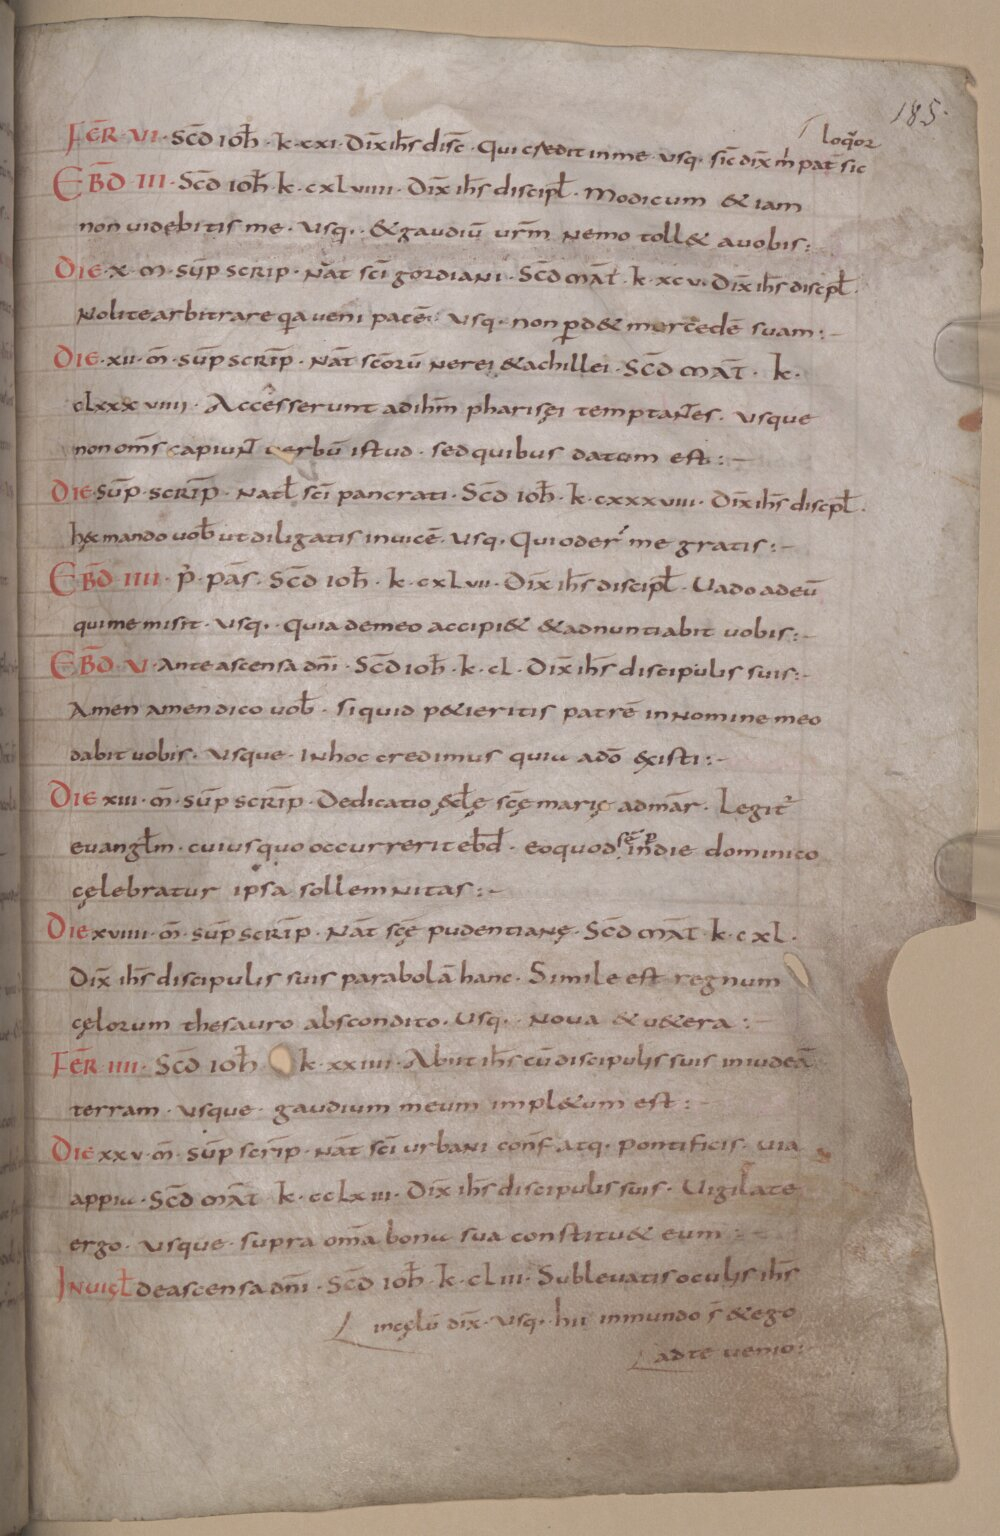 185.
FER̄ · VI · SCD̄ IOH̄ · k · cxxi · Dix̄ ih̄s disc̄ · Qui credit in me · usq· sic̄ dix̄ m̄ pat̄ sic
loq̄or
EBD̄ III · SCD̄ IOH̄ · k · cxlviiii · Dix̄ ih̄s discipl̄ · Modicum & iam
non uidebitis me · Usq· · & gaudiū ur̄m nemo toll& a uobis :
DIE · X · M̄ · SUP̄ SCRIP · NAT̄ sc̄i gordiani · SCD̄ MAT̄ · k · xcv · Dix̄ ih̄s discpl̄ ·
Nolite arbitrare q̄a ueni pacē · Usq · non ꝑd& mercedē suam : –
DIE · XII · M̄ · SUP̄ SCRIP̄ · NAT̄ sc̄orū nerei & achillei · SCD̄ MAT̄ · k ·
clxxxviiii · Accesserunt ad ih̄m pharisęi temptantes · usque
non om̄s capiunt uerbū istud · sed quibus datum est : –
DIE · SUP̄ · SCRIP̄ · Natl̄ sc̄i pancrati · SCD̄ IOH̄ · k · cxxxviii · Dix̄ ih̄s discpl̄ ·
hęc mando uob̄ ut diligatis inuicē · Usq · Qui oder̄ me gratis : –
EBD̄ IIII · p̄ · pas̄ · SCD̄ IOH̄ · k · cxlvii · Dix̄ ih̄s discipl̄ · Uado ad eū
qui me misit · usq · · quia de meo accipi& & adnuntiabit uobis : –
EBD̄ V · Ante ascensa dn̄i · SCD̄ IOH̄ · k · cl · Dix̄ ih̄s discipulis suis : –
Amen amen dico uob̄ · si quid p&ieritis patrē in nomine meo
dabit uobis · usque · In hoc credimus quia a dō existi : –
DIE XIII · M̄ · SUP̄ SCRIP̄ · Dedicatio ęcl̄ę sc̄ę marię ad mar̄ · Legit̄
euangl̄m · cuius quo occurrerit ebd̄ · eo quod sēp in die dominico
cęlebratur ipsa sollemnitas : –
DIE XVIIII · M̄ · SUP̄ SCRIP̄ · NAT̄ sc̄ę pudentianę · SCD̄ MAT̄ · k · cxl ·
Dix̄ ih̄s discipulis suis parabolā hanc · Simile est regnum
cęlorum thesauro abscondito · Usq · · noua & u&era : –
FER̄ · IIII · SCD̄ IOH̄ k · xxiiii · Abiit ih̄s cū discipulis suis in iudeā
terram · usque · gaudium meum impl&um est : –
DIE XXV · M̄ · SUP̄ SCRIP̄ · NAT̄ sc̄i urbani conf̄ atq · pontificis · uia
appia · SCD̄ MAT̄ k · cclxiii · Dix̄ ih̄s discipulis suis · Uigilate
ergo · usque · supra om̄a bona sua constitu& eum : –
INUIGL̄ de ascensa dn̄i · SCD̄ IOH̄ · k · cliii · Subleuatis oculis ih̄s
in cęlū dix̄ · usq · · hii in mundo s̄ & ego
ad te uenio :